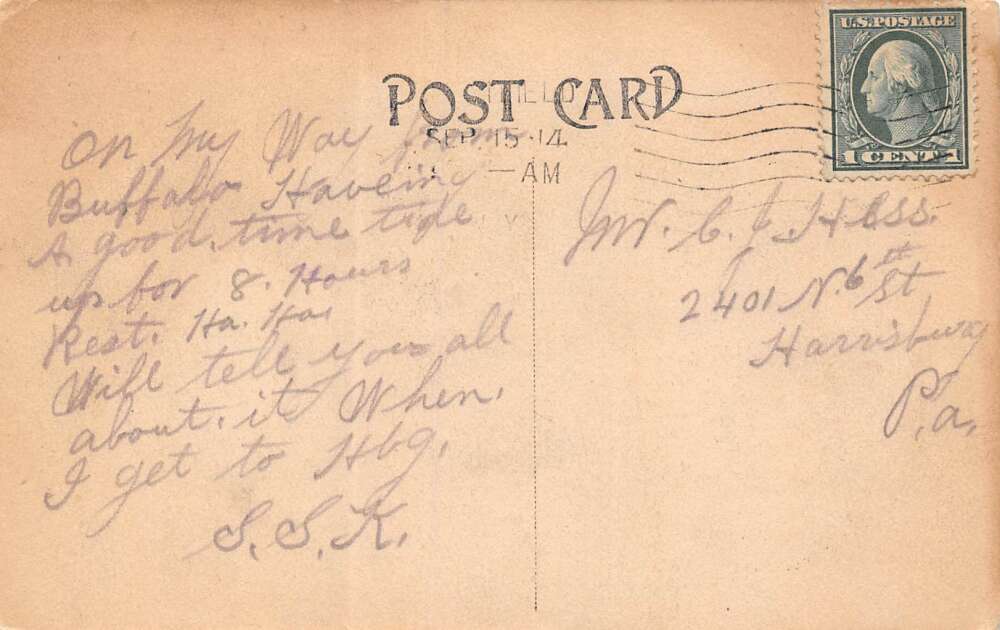 POST CARD
U.S. POSTAGE
1 CENT 1
SEP 15 14
— AM
On My Way from
Buffalo Haveing
A good time tide
up for 8. Hours
Rest. Ha. Ha.
Will tell you all
about it When.
I get to Hbg.
S. S. K.
Mr. C. J. Hess.
2401 N. 6th St
Harrisburg
Pa.